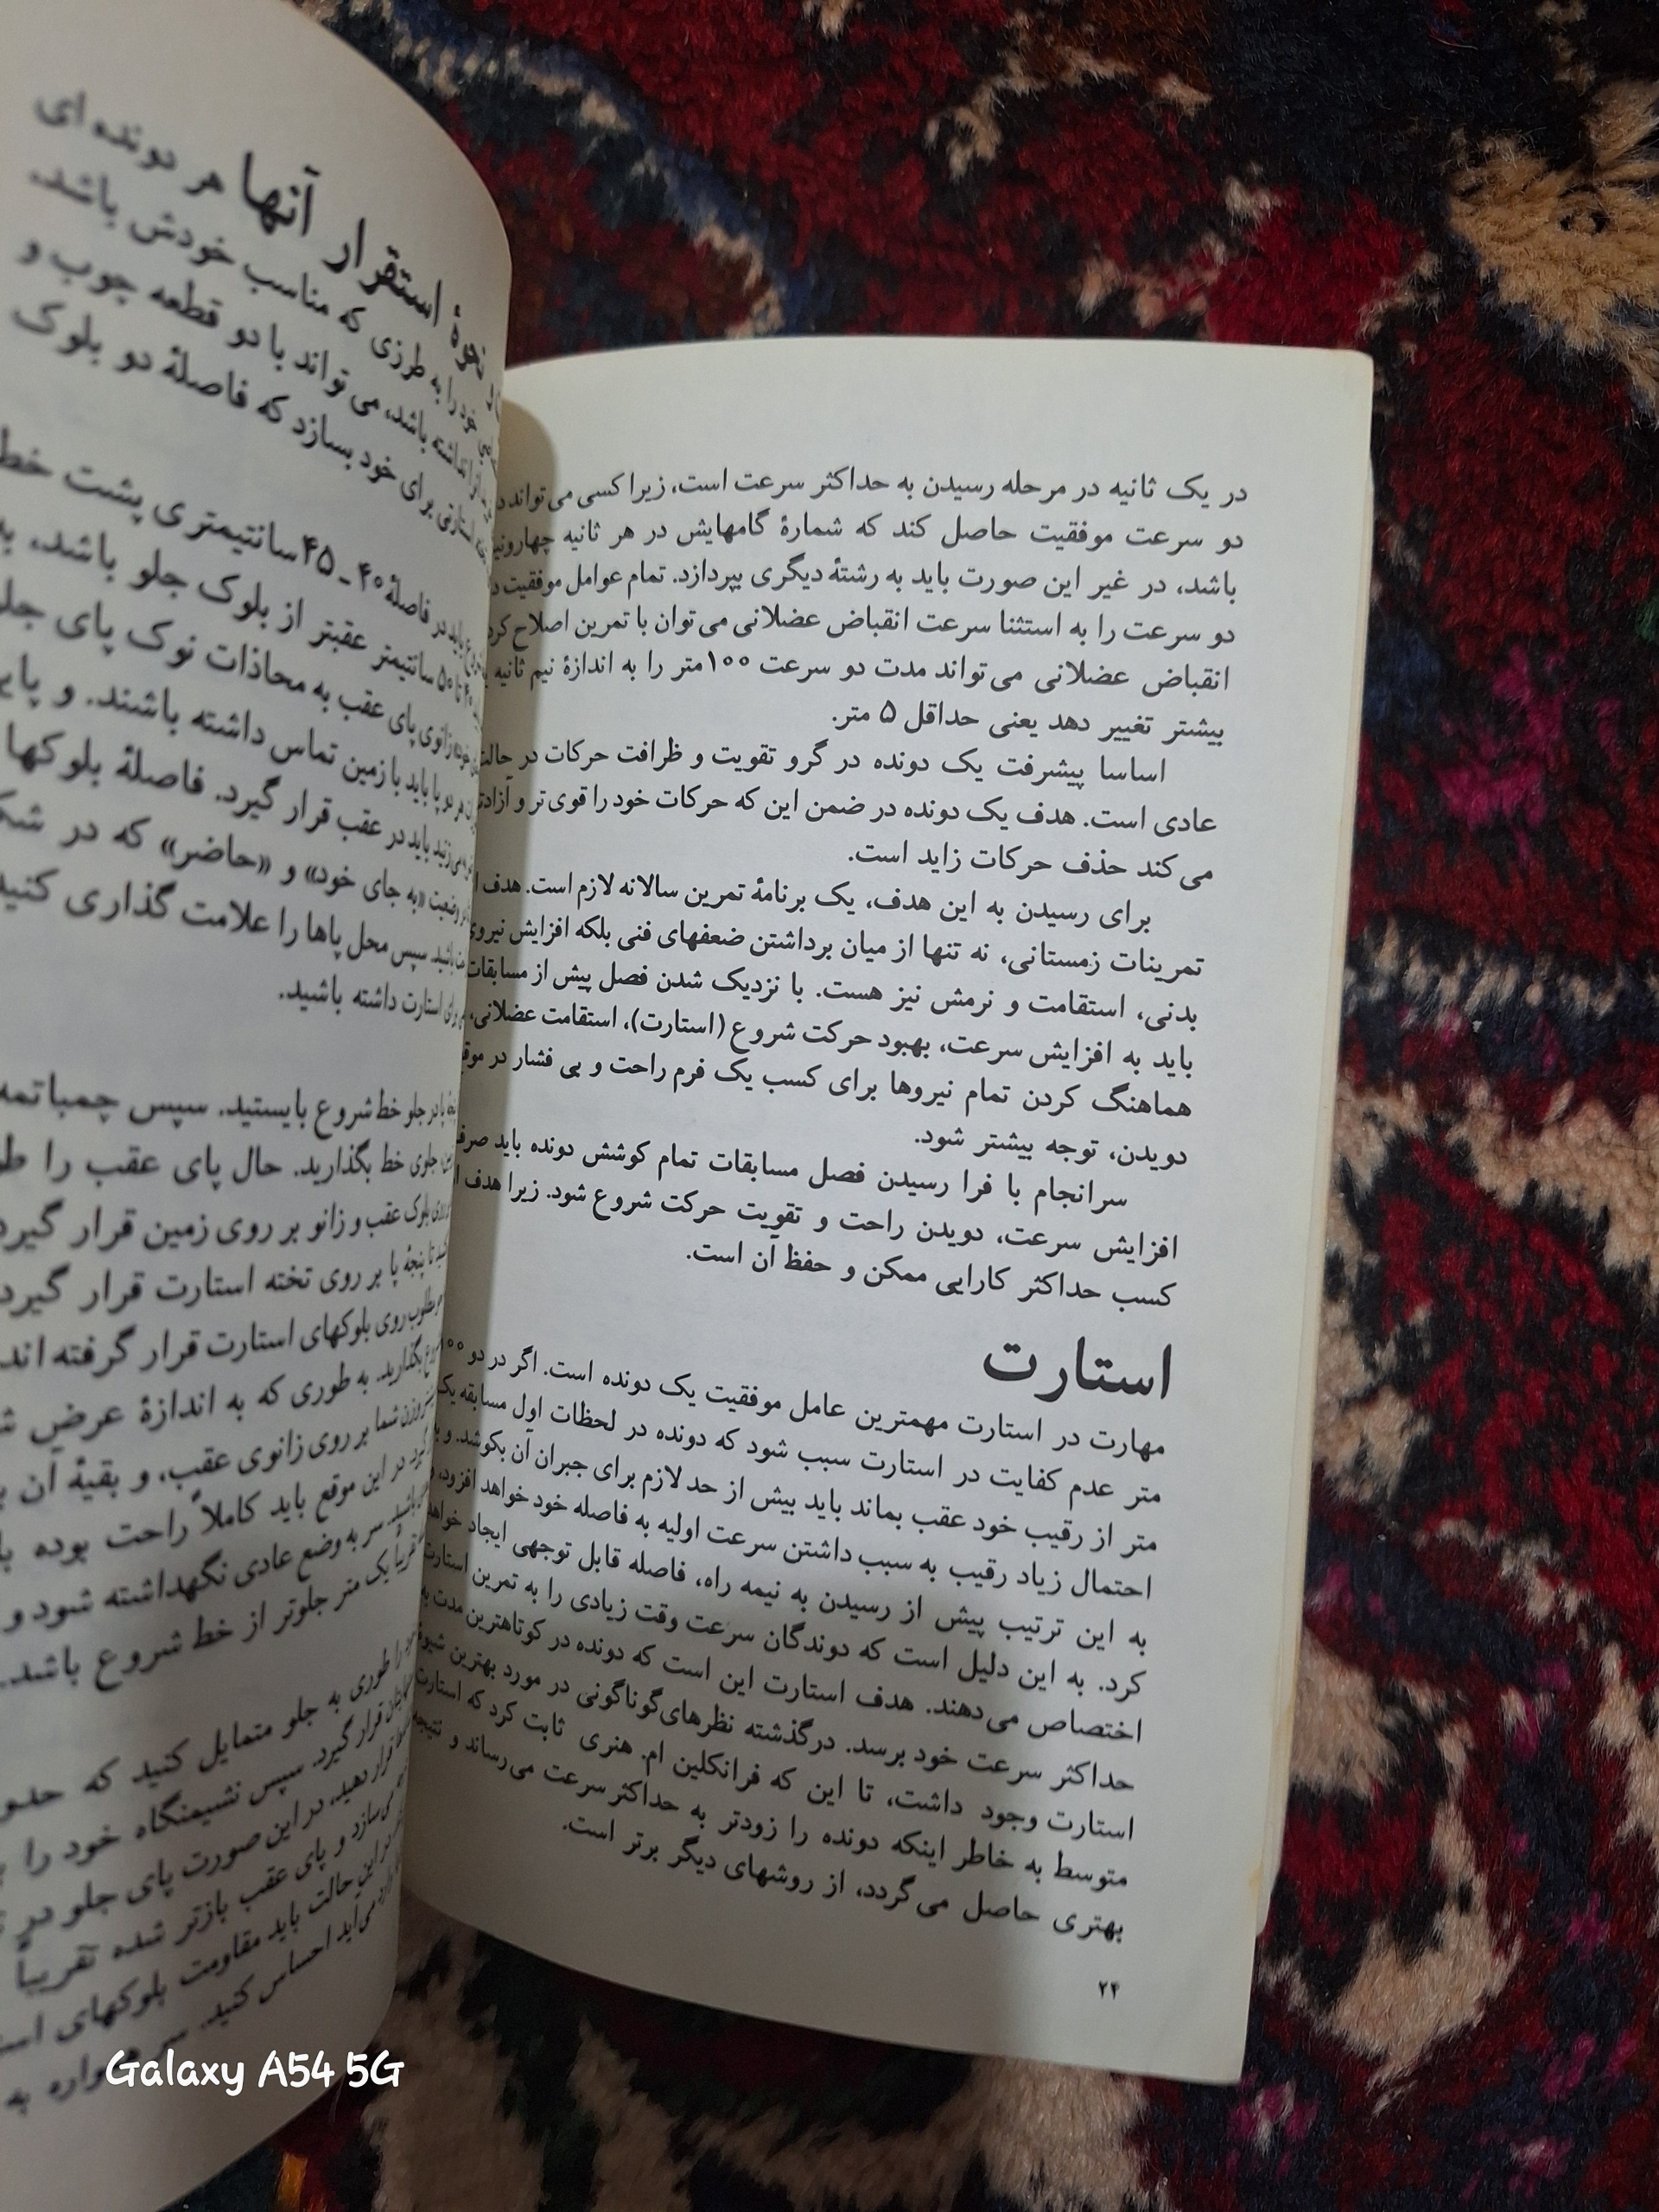 در یک ثانیه در مرحله رسیدن به حداکثر سرعت است، زیرا کسی می‌تواند
دو سرعت موفقیت حاصل کند که شمارهٔ گامهایش در هر ثانیه
باشد، در غیر این صورت باید به رشتهٔ دیگری بپردازد. تمام عوامل موفقیت
دو سرعت را به استثنا سرعت انقباض عضلانی می‌توان با تمرین اصلاح کرد
انقباض عضلانی می‌تواند مدت دو سرعت ۱۰۰متر را به اندازهٔ نیم ثانیه
بیشتر تغییر دهد یعنی حداقل ۵ متر.
اساسا پیشرفت یک دونده در گرو تقویت و ظرافت حرکات در حالت
عادی است. هدف یک دونده در ضمن این که حرکات خود را قوی‌تر و
می‌کند حذف حرکات زاید است.
برای رسیدن به این هدف، یک برنامهٔ تمرین سالانه لازم است. هدف
تمرینات زمستانی، نه تنها از میان برداشتن ضعفهای فنی بلکه افزایش نیروی
بدنی، استقامت و نرمش نیز هست. با نزدیک شدن فصل پیش از مسابقات
باید به افزایش سرعت، بهبود حرکت شروع (استارت)، استقامت عضلانی،
هماهنگ کردن تمام نیروها برای کسب یک فرم راحت و بی فشار در
دویدن، توجه بیشتر شود.
سرانجام با فرا رسیدن فصل مسابقات تمام کوشش دونده باید
افزایش سرعت، دویدن راحت و تقویت حرکت شروع شود. زیرا هدف
کسب حداکثر کارایی ممکن و حفظ آن است.
استارت
مهارت در استارت مهمترین عامل موفقیت یک دونده است. اگر در دو
متر عدم کفایت در استارت سبب شود که دونده در لحظات اول مسابقه یک
متر از رقیب خود عقب بماند باید بیش از حد لازم برای جبران آن بکوشد. و
احتمال زیاد رقیب به سبب داشتن سرعت اولیه به فاصله خود خواهد افزود،
به این ترتیب پیش از رسیدن به نیمه راه، فاصله قابل توجهی ایجاد خواهد
کرد. به این دلیل است که دوندگان سرعت وقت زیادی را به تمرین استارت
اختصاص می‌دهند. هدف استارت این است که دونده در کوتاهترین مدت به
حداکثر سرعت خود برسد. درگذشته نظرهای‌گوناگونی در مورد بهترین شیوهٔ
استارت وجود داشت، تا این که فرانکلین ام. هنری ثابت کرد که استارت
متوسط به خاطر اینکه دونده را زودتر به حداکثر سرعت می‌رساند و نتیجه
بهتری حاصل می‌گردد، از روشهای دیگر برتر است.
۲۴
نحوهٔ استقرار آنها هر دونده‌ای
خود را به طرزی که مناسب خودش باشد،
باشد، می تواند با دو قطعه چوب و
استارتی برای خود بسازد که فاصلهٔ دو بلوک
باید در فاصلهٔ ۴۰ ـ ۴۵سانتیمتری پشت خط
۵۰ سانتیمتر عقبتر از بلوک جلو باشد،
زانوی پای عقب به محاذات نوک پای
پا باید با زمین تماس داشته باشند. و
باید در عقب قرار گیرد. فاصلهٔ بلوکها
وضعیت «به جای خود» و «حاضر» که در
سپس محل پاها را علامت گذاری کنید
برای استارت داشته باشید.
در جلو خط شروع بایستید. سپس چمباتمه
جلوی خط بگذارید. حال پای عقب را
بلوک عقب و زانو بر روی زمین قرار گیرد
تا پنجهٔ پا بر روی تخته استارت قرار گیرد
روی بلوکهای استارت قرار گرفته اند
بگذارید. به طوری که به اندازهٔ عرض
وزن شما بر روی زانوی عقب، و بقیهٔ آن
در این موقع باید کاملاً راحت بوده
سر به وضع عادی نگهداشته شود و
تقریباً یک متر جلوتر از خط شروع باشد.
را طوری به جلو متمایل کنید که
قرار گیرد. سپس نشیمنگاه خود را
قرار دهید، در این صورت پای جلو در
می‌سازد و پای عقب بازتر شده تقریباً
در این حالت باید مقاومت بلوکهای
می‌آید احساس کنید. سر
Galaxy A54 5G